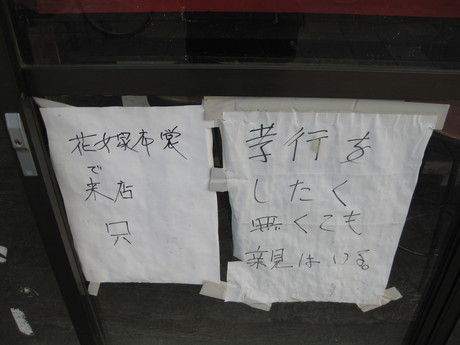 花嫁本営
で
来店
只
孝行を
したく
無くこも
親はいる